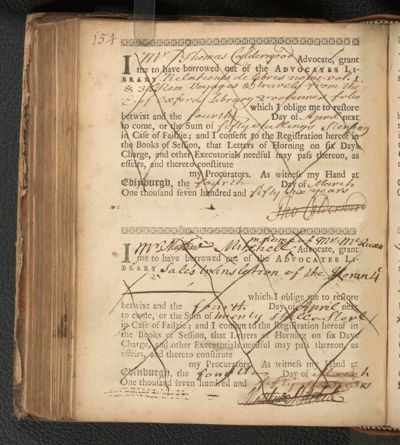 154
I Mr Thomas Calderwood Advocate, grant
me to have borrowed out of the ADVOCATES LI-
BRARY Relations de divers voyes vol: 1.
& 3
which I oblige me to restore
betwixt and the fourth Day of April next
to come, or the Sum of fifty shillings Sterling
in Case of Failzie; and I consent to the Registration hereof in
the Books of Session, that Letters of Horning on six Days
Charge, and other Executorials needful may pass thereon, as
effeirs, and thereto constitute
my Procurators. As witness my Hand at
Edinburgh, the fourth Day of March
One thousand seven hundred and fifty six years
Tho: Calderwood
I Mr Mitchell Advocate, grant
me to have borrowed out of the ADVOCATES LI-
BRARY Sales translation of the Koran 4°
which I oblige me to restore
betwixt and the fourth Day of April next
to come, or the Sum of twenty
in Case of Failzie; and I consent to the Registration hereof in
the Books of Session, that Letters of Horning on six Days
Charge, and other Executorials needful may pass thereon, as
effeirs, and thereto constitute
my Procurators. As witness my Hand at
Edinburgh, the fourth Day of March
One thousand seven hundred and fifty years